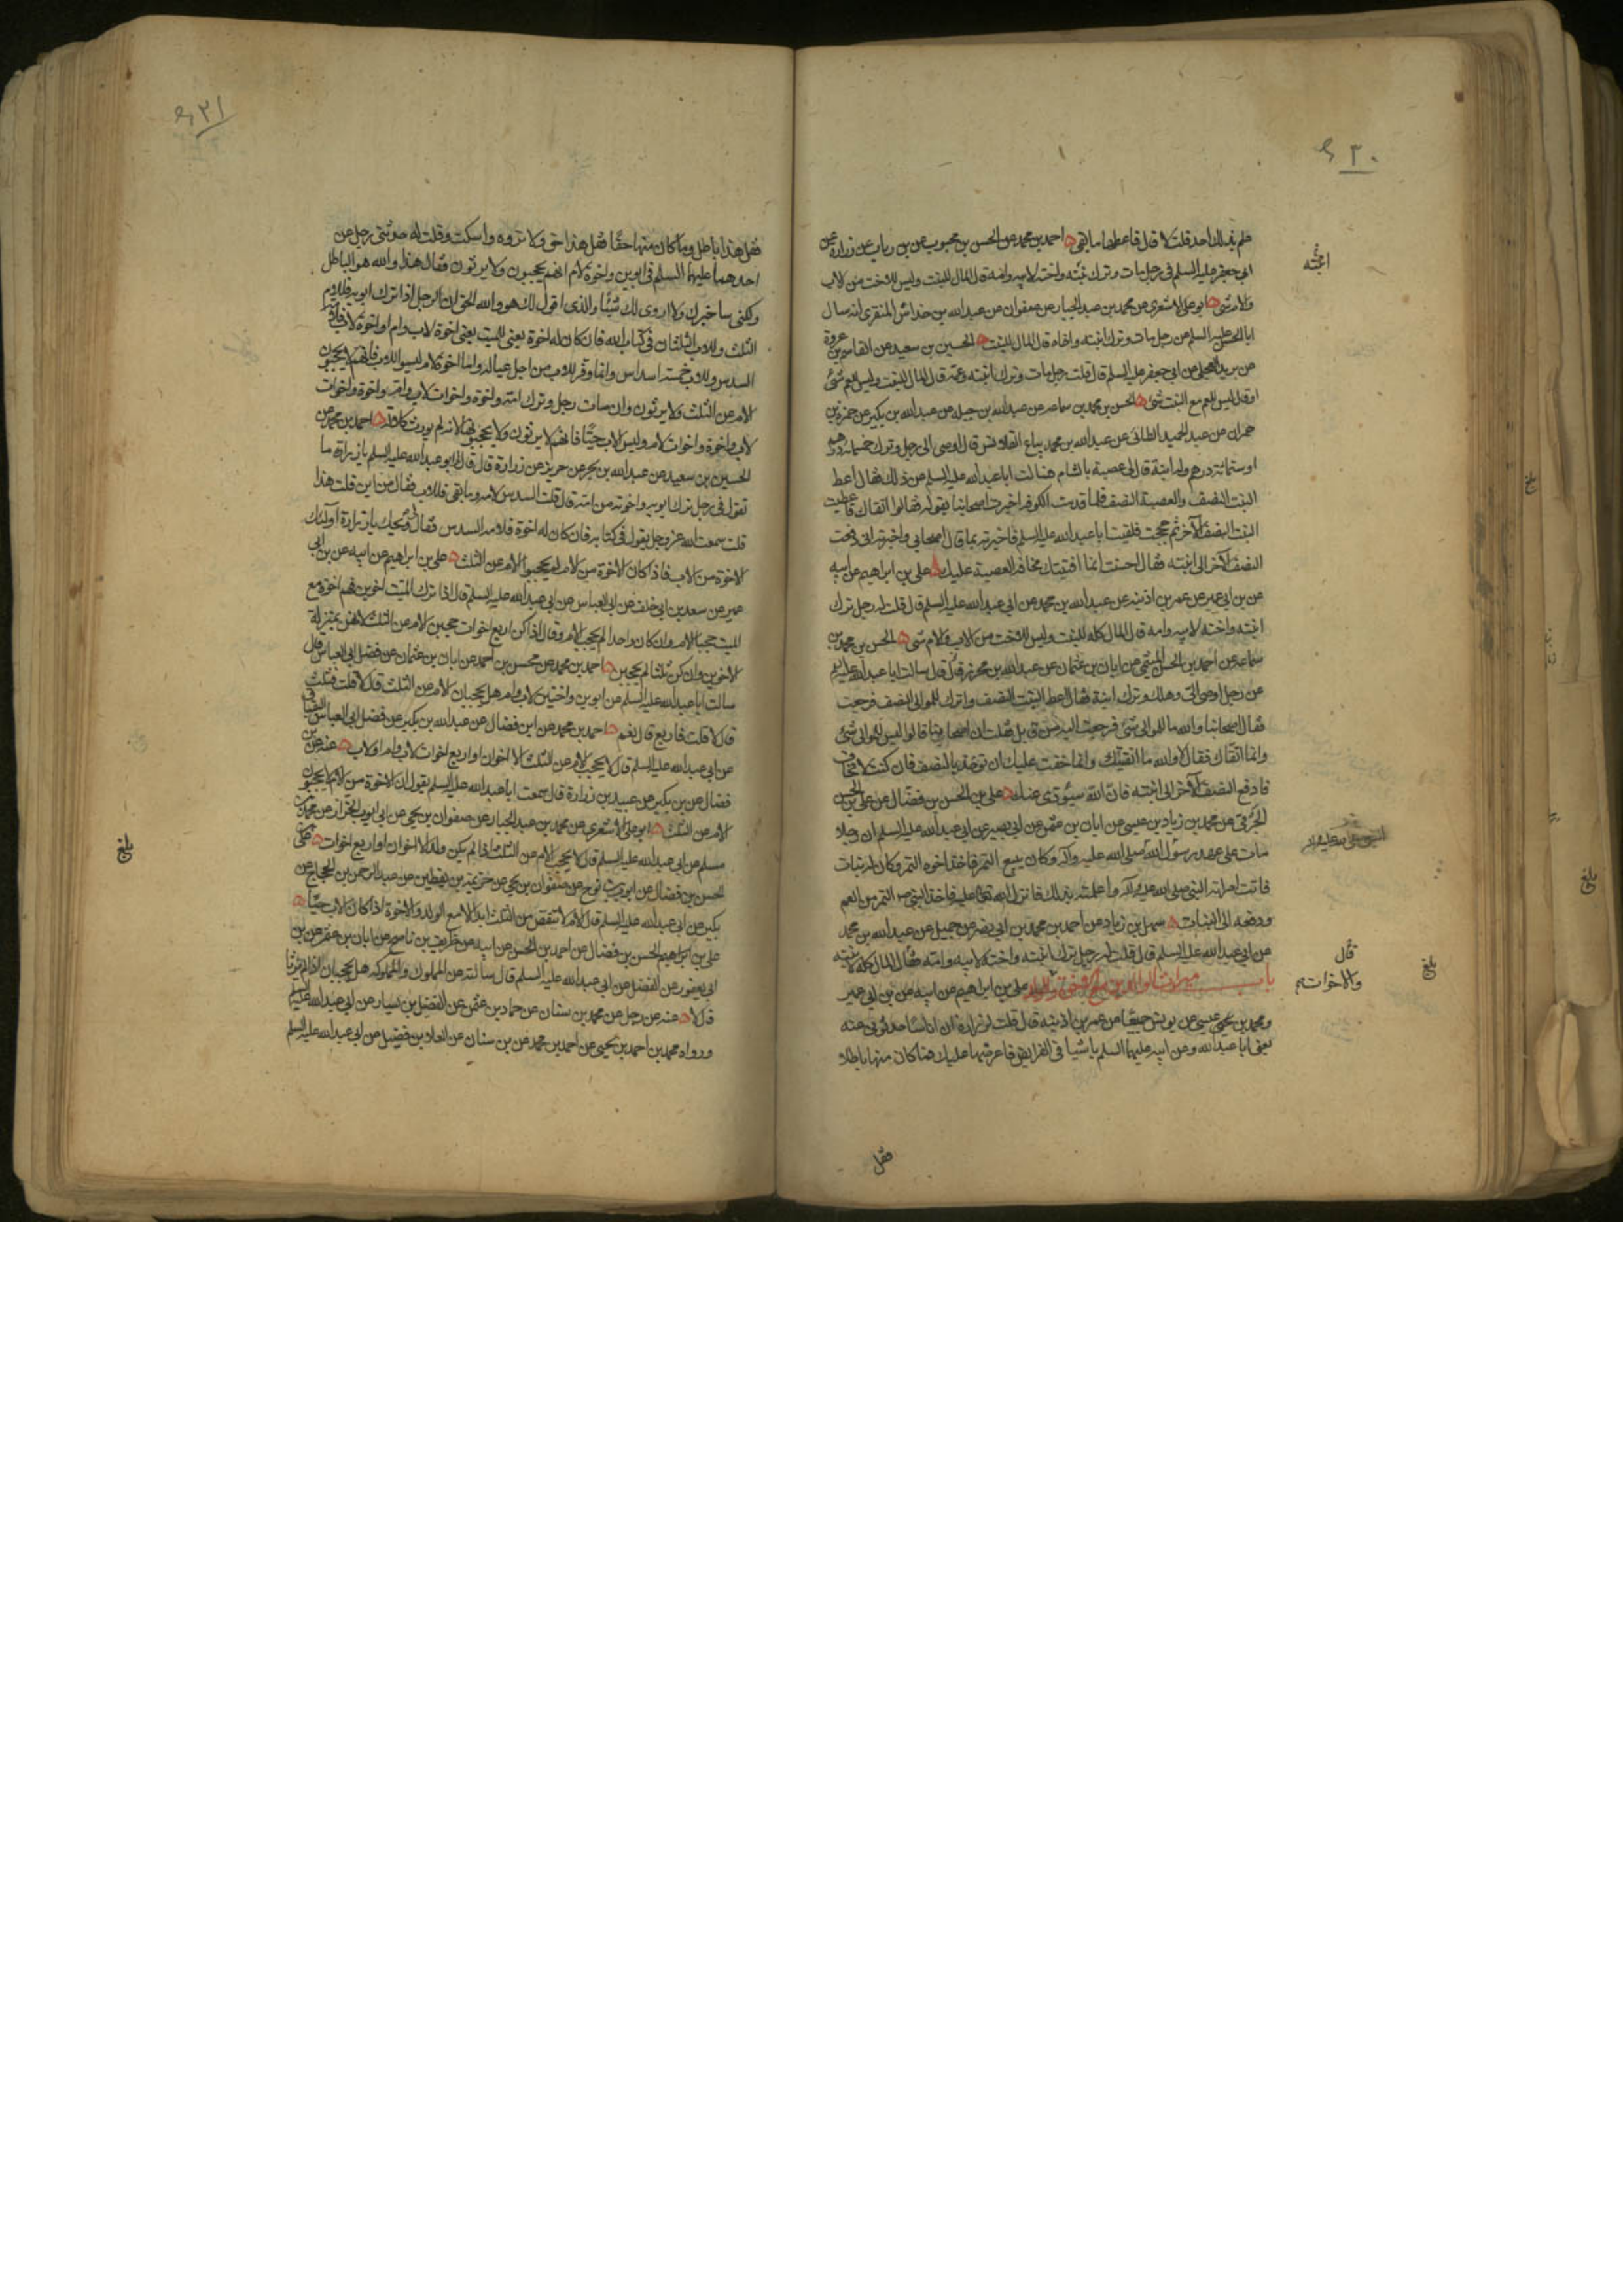 ٢٠ ع
علم بذلك احد قلت لا قال فاعطها ما بقى ه احمد بن محمد عن الحسن بن محبوب عن بن رياب عن زرارة عن
ابى جعفر عليه السلم فى رجل مات وترك ابنته واخته لابيه وامه قال المال للبنت وليس للاخت من الاب
والام شئ ه ابو على الاشعرى عن محمد بن عبد الجبار عن صفوان عن عبد الله بن خداش المنقرى انه سال
ابا الحسن عليه السلم عن رجل مات وترك ابنته واخاه قال المال للبنت ه الحسين بن سعيد عن القاسم بن عروة
عن بريد العجلى عن ابى جعفر عليه السلم قال قلت رجل مات وترك ابنته وعمه قال المال للبنت وليس للعم شئ
او قال ليس للعم مع البنت شئ ه الحسن بن محمد بن سماعة عن عبد الله بن جبلة عن عبد الله بن بكير عن حمزة بن
حمران عن عبد الحميد الطائى عن عبد الله بن محمد بياع القلانيس قال اوصى الى رجل وترك خمسمائة درهم
او ستمائة درهم وله ابنة قال لى عصبة بالشام فسالت ابا عبد الله عليه السلم عن ذلك فقال اعط
البنت النصف والعصبة النصف فلما قدمت الكوفة اخبرت اصحابنا بقوله فقالوا اتقاك فاعطيت
البنت النصف الآخر ثم حججت فلقيت ابا عبد الله عليه السلم فاخبرته بما قال اصحابى واخبرته انى دفعت
النصف الآخر الى ابنته فقال احسنت انما افتيتك مخافة العصبة عليك ه على بن ابراهيم عن ابيه
عن بن ابى عمير عن عمر بن اذينه عن عبد الله بن محمد عن ابى عبد الله عليه السلم قال قلت له رجل ترك
ابنته واخته لابيه وامه قال المال كله للبنت وليس للاخت من الاب والام شئ ه الحسن بن محمد بن
سماعة عن احمد بن الحسن الميثمى عن ابان بن عثمان عن عبد الله بن محرز قال سالت ابا عبد الله عليه السلم
عن رجل اوصى الى وهلك وترك ابنة فقال اعط البنت النصف واترك للموالى النصف فرجعت
فقال اصحابنا والله ما للموالى شئ فرجعت اليه من قابل فقلت ان اصحابنا قالوا ليس للموالى شئ
وانما اتقاك فقال لا والله ما اتقيتك وانما خفت عليك ان توخذ بالنصف فان كنت لا تخاف
فادفع النصف الآخر الى ابنته فان الله سيؤدى عنك ه على بن الحسن بن فضال عن على بن الحسن
الجرمى عن محمد بن زياد بن عيسى عن ابان بن عثمن عن ابى بصير عن ابى عبد الله عليه السلم ان رجلا
مات على عهد رسول الله صلى الله عليه وآله وكان يبيع التمر فاخذ اخوه التمر وكان له بنات
فاتت امراته النبى صلى الله عليه وآله واعلمته بذلك فانزل الله تعالى عليه فاخذ النبى ص التمر من العم
ودفعه الى البنات ه سهل بن زياد عن احمد بن محمد بن ابى نصر عن جميل عن عبد الله بن محمد
عن ابى عبد الله عليه السلم قال قلت له رجل ترك ابنته واخته لابيه وامه فقال المال كله لابنته
باب ميراث الوالدين مع الاخوة على بن ابراهيم عن ابيه عن بن ابى عمير
ومحمد بن عيسى عن يونس جميعا عن عمر بن اذينه قال قلت لزرارة ان اناسا حدثونى عنه
يعنى ابا عبد الله وعن ابيه عليهما السلم باشيا فى الفرايض فاعرضها عليك فما كان منها باطلا
فقل
ابنته
قال
والاخوات
بلغ
٢١ ع
فقل هذا باطل وما كان منها حقا فقل هذا حق ولا تروه واسكت وقلت له حدثنى رجل عن
احدهما عليهما السلم فى ابوين واخوة لام انهم يحجبون ولا يرثون فقال هذا والله هو الباطل
ولكنى ساخبرك ولا اروى لك شيئا والذى اقول لك هو والله الحق ان الرجل اذا ترك ابويه فللام
الثلث وللاب الثلثان فى كتاب الله فان كان له اخوة يعنى للميت يعنى اخوة لاب وام او اخوة لاب فلامه
السدس وللاب خمسة اسداس وانما وفر للاب من اجل عياله واما الاخوة لام ليسوا للاب فانهم لا يحجبون
الام عن الثلث ولا يرثون وان مات رجل وترك امه واخوة واخوات لاب وام واخوة واخوات
لاب واخوة واخوات لام وليس الاب حيا فانهم لا يرثون ولا يحجبونها لانه لم يورث كلالة ه احمد بن محمد عن
الحسين بن سعيد عن عبد الله بن بحر عن حريز عن زرارة قال قال لى ابو عبد الله عليه السلم يا زرارة ما
تقول فى رجل ترك ابويه واخوته من امه قال قلت السدس لامه وما بقى فللاب فقال من اين قلت هذا
قلت سمعت الله عز وجل يقول فى كتابه فان كان له اخوة فلامه السدس فقال لى ويحك يا زرارة اولئك
الاخوة من الاب فاذا كان الاخوة من الام لم يحجبوا الام عن الثلث ه على بن ابراهيم عن ابيه عن بن ابى
عمير عن سعد بن ابى خلف عن ابى العباس عن ابى عبد الله عليه السلم قال اذا ترك الميت اخوين فهم اخوة مع
الميت حجبا الام وان كان واحدا لم يحجب الام وقال اذا كن اربع اخوات حجبن الام عن الثلث لانهن بمنزلة
الاخوين وان كن ثلثا لم يحجبن ه احمد بن محمد عن محسن بن احمد عن ابان بن عثمان عن فضل ابى العباس قال
سالت ابا عبد الله عليه السلم عن ابوين واختين لاب وام هل يحجبان الام عن الثلث قال لا قلت فثلث
قال لا قلت فاربع قال نعم ه احمد بن محمد عن ابن فضال عن عبد الله بن بكير عن فضل ابى العباس البقباق
عن ابى عبد الله عليه السلم قال لا يحجب الام عن الثلث الا اخوان او اربع اخوات لاب وام او لاب ه عنه عن بن
فضال عن بن بكير عن عبيد بن زرارة قال سمعت ابا عبد الله عليه السلم يقول ان الاخوة من الام لا يحجبون
الام عن الثلث ه ابو على الاشعرى عن محمد بن عبد الجبار عن صفوان بن يحيى عن ابى ايوب الخزاز عن محمد بن
مسلم عن ابى عبد الله عليه السلم قال لا يحجب الام عن الثلث اذا لم يكن ولد الا اخوان او اربع اخوات ه على بن
الحسن بن فضال عن ايوب بن نوح عن صفوان بن يحيى عن خزيمة بن يقطين عن عبد الرحمن بن الحجاج عن
بكير عن ابى عبد الله عليه السلم قال الام لا تنقص من الثلث ابدا الا مع الولد والاخوة اذا كان الاب حيا ه
على بن ابراهيم الحسن بن فضال عن احمد بن الحسن عن ابيه عن ظريف بن ناصح عن ابان بن عثمن عن بن
ابى يعفور عن الفضل عن ابى عبد الله عليه السلم قال سالته عن المملوك والمملوكة هل يحجبان اذا لم يرثا
قال لا ه عنه عن رجل عن محمد بن سنان عن حماد بن عثمن عن الفضيل بن يسار عن ابى عبد الله عليه السلم
ورواه محمد بن احمد بن يحيى عن احمد بن محمد عن بن سنان عن العلاء بن فضيل عن ابى عبد الله عليه السلم
بلغ